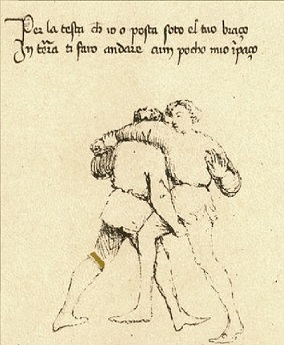 Per la testa ch io o posta soto el tuo braço
In terra ti faro andare cum pocho mio impaço